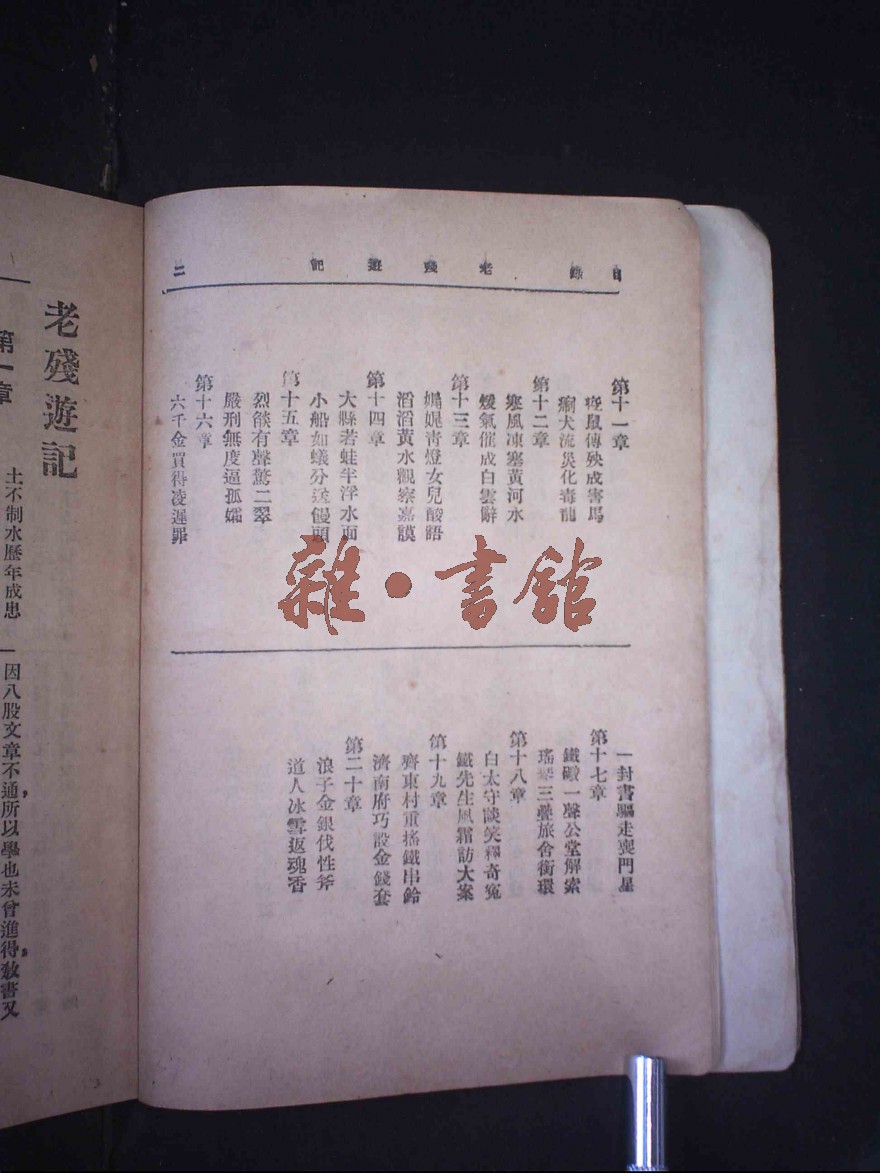 目錄 老殘遊記 二
第十一章
疫鼠傳殃成害馬
瘈犬流災化毒龍
第十二章
寒風凍塞黃河水
煖氣催成白雪辭
第十三章
娓娓青燈女兒酸語
滔滔黃水觀察嘉謨
第十四章
大縣若蛙半浮水面
小船如蟻分送饅頭
第十五章
烈燄有聲驚二翠
嚴刑無度逼孤孀
第十六章
六千金買得凌遲罪
一封書驅走喪門星
第十七章
鐵礮一聲公堂解索
瑤琴三疊旅舍銜環
第十八章
白太守談笑釋奇冤
鐵先生風霜訪大案
第十九章
齊東村重搖鐵串鈴
濟南府巧設金錢套
第二十章
浪子金銀伐性斧
道人冰雪返魂香
雜·書館
老殘遊記
第一章
土不制水歷年成患
因八股文章不通所以學也未曾進得教書又